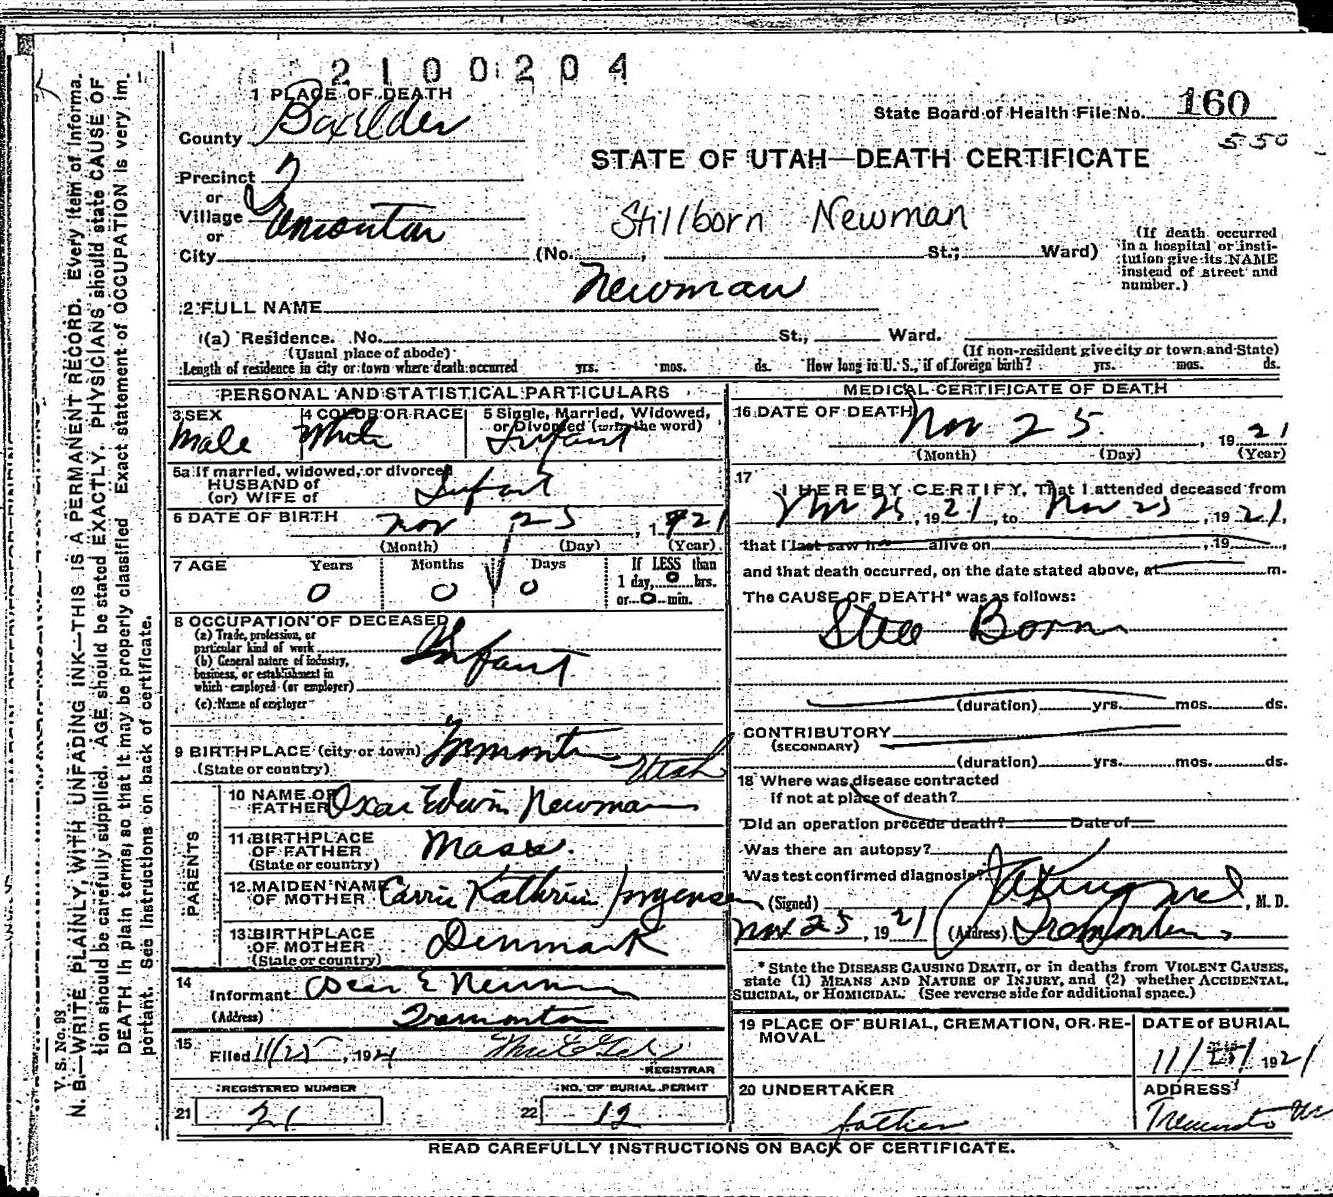 2100204
1 PLACE OF DEATH
State Board of Health File No. 160
550
County Boxelder
STATE OF UTAH—DEATH CERTIFICATE
Precinct
or
Village Tremonton
or
City (No. , St.; Ward)
Stillborn Newman
(If death occurred
in a hospital or insti-
tution give its NAME
instead of street and
number.)
2 FULL NAME Newman
(a) Residence. No. St., Ward.
(Usual place of abode) (If non-resident give city or town and State)
Length of residence in city or town where death occurred yrs. mos. ds. How long in U. S., if of foreign birth? yrs. mos. ds.
PERSONAL AND STATISTICAL PARTICULARS
3 SEX 4 COLOR OR RACE 5 Single, Married, Widowed,
or Divorced (write the word)
Male White Infant
5a If married, widowed, or divorced
HUSBAND of
(or) WIFE of Infant
6 DATE OF BIRTH Nov 25, 1921
(Month) (Day) (Year)
7 AGE Years Months Days If LESS than
1 day, 0 hrs.
or 0 min.
0 0 0
8 OCCUPATION OF DECEASED
(a) Trade, profession, or
particular kind of work
(b) General nature of industry,
business, or establishment in
which employed (or employer)
(c) Name of employer
Infant
9 BIRTHPLACE (city or town) Tremonton
(State or country) Utah
PARENTS
10 NAME OF
FATHER Oscar Edwin Newman
11 BIRTHPLACE
OF FATHER Mass.
(State or country)
12 MAIDEN NAME
OF MOTHER Carrie Kathrine Jorgensen
13 BIRTHPLACE
OF MOTHER Denmark
(State or country)
14
Informant Oscar E Newman
(Address) Tremonton
15
Filed 11/25, 1921
REGISTRAR
REGISTERED NUMBER NO. OF BURIAL PERMIT
21 21 22 12
MEDICAL CERTIFICATE OF DEATH
16 DATE OF DEATH Nov 25, 1921
(Month) (Day) (Year)
17
I HEREBY CERTIFY, That I attended deceased from
Nov 25, 1921, to Nov 25, 1921,
that I last saw h alive on , 19 ,
and that death occurred, on the date stated above, at m.
The CAUSE OF DEATH* was as follows:
Still Born
(duration) yrs. mos. ds.
CONTRIBUTORY
(SECONDARY)
(duration) yrs. mos. ds.
18 Where was disease contracted
if not at place of death?
Did an operation precede death? Date of
Was there an autopsy?
Was test confirmed diagnosis?
(Signed) , M. D.
Nov 25, 1921 (Address) Tremonton
* State the DISEASE CAUSING DEATH, or in deaths from VIOLENT CAUSES,
state (1) MEANS AND NATURE OF INJURY, and (2) whether ACCIDENTAL,
SUICIDAL, or HOMICIDAL. (See reverse side for additional space.)
19 PLACE OF BURIAL, CREMATION, OR RE-
MOVAL
DATE of BURIAL
11/25/1921
20 UNDERTAKER
father
ADDRESS
Tremonton
READ CAREFULLY INSTRUCTIONS ON BACK OF CERTIFICATE.
V. S. No. 93
N. B.—WRITE PLAINLY, WITH UNFADING INK—THIS IS A PERMANENT RECORD. Every item of informa-
tion should be carefully supplied. AGE should be stated EXACTLY. PHYSICIANS should state CAUSE OF
DEATH in plain terms, so that it may be properly classified. Exact statement of OCCUPATION is very im-
portant. See instructions on back of certificate.